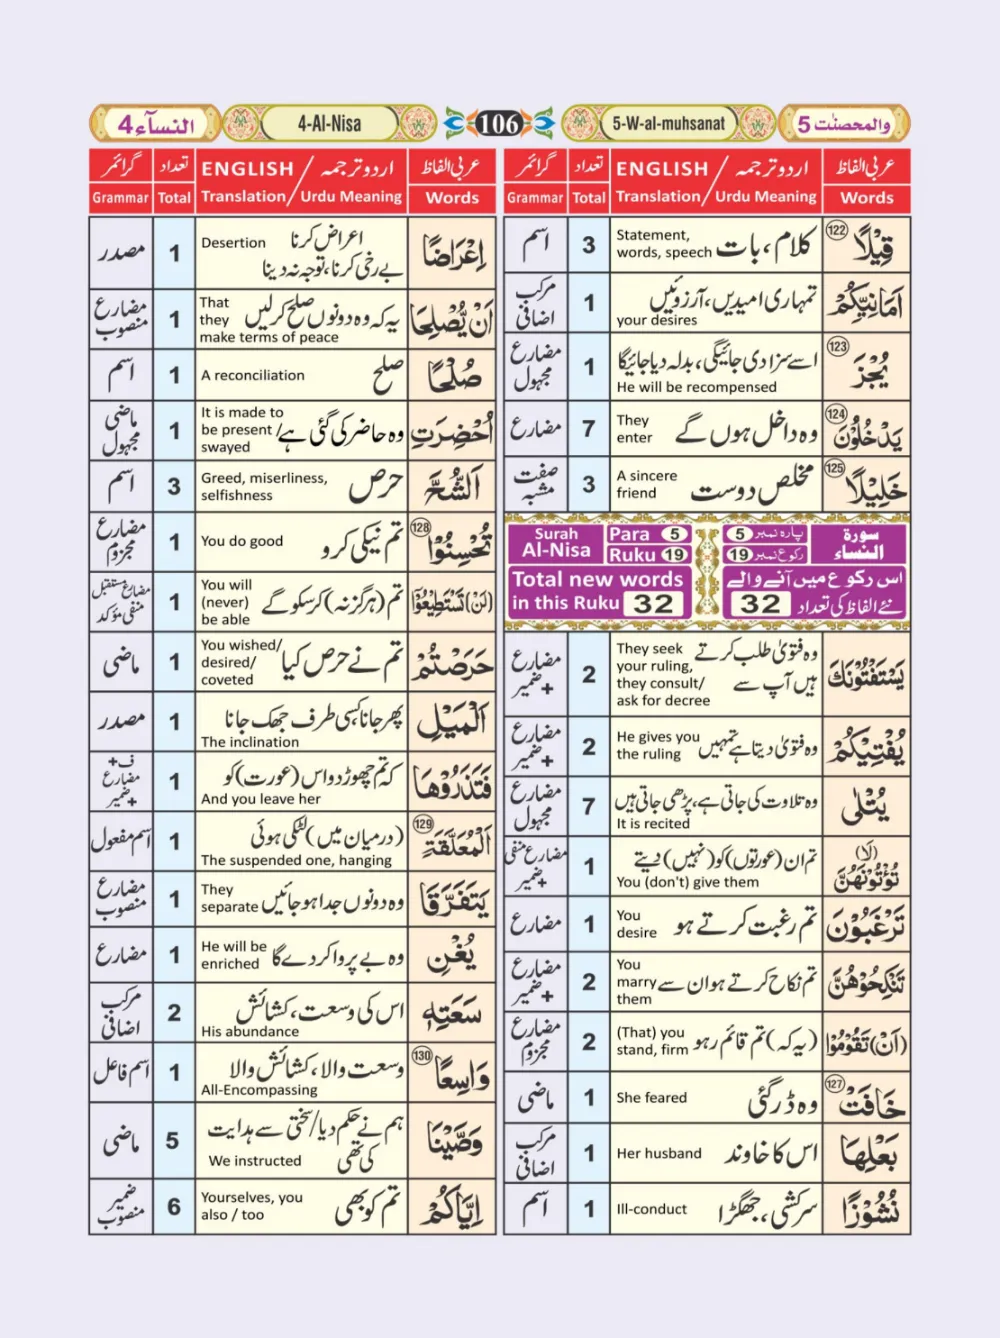 النسآء 4
4-Al-Nisa
106
5-W-al-muhsanat
والمحصنٰت 5
عربی الفاظ
اردو ترجمہ / ENGLISH
تعداد
گرائمر
Words
Translation / Urdu Meaning
Total
Grammar
(122) قِيْلًا
کلام، بات
Statement,
words, speech
3
اسم
اَمَانِيِّكُمْ
تمہاری امیدیں، آرزوئیں
your desires
1
مرکب اضافی
(123) يُجْزَ
اسے سزا دی جائیگی، بدلہ دیا جائیگا
He will be recompensed
1
مضارع مجہول
(124) يَدْخُلُوْنَ
وہ داخل ہوں گے
They
enter
7
مضارع
(125) خَلِيْلًا
مخلص دوست
A sincere
friend
3
صفت مشبہ
سورة النساء
پارہ نمبر 5
رکوع نمبر 19
Surah Al-Nisa
Para 5
Ruku 19
اس رکوع میں آنے والے
نئے الفاظ کی تعداد 32
Total new words
in this Ruku 32
يَسْتَفْتُوْنَكَ
وہ فتویٰ طلب کرتے
ہیں آپ سے
They seek
your ruling,
they consult/
ask for decree
2
مضارع + ضمیر
يُفْتِيْكُمْ
وہ فتویٰ دیتا ہے تمہیں
He gives you
the ruling
2
مضارع + ضمیر
يُتْلٰى
وہ تلاوت کی جاتی ہے، پڑھی جاتی ہیں
It is recited
7
مضارع مجہول
(لَا) تُؤْتُوْنَهُنَّ
تم ان (عورتوں) کو (نہیں) دیتے
You (don't) give them
1
مضارع منفی + ضمیر
تَرْغَبُوْنَ
تم رغبت کرتے ہو
You
desire
1
مضارع
تَنْكِحُوْهُنَّ
تم نکاح کرتے ہو ان سے
You
marry
them
2
مضارع + ضمیر
(اَنْ) تَقُوْمُوْا
(یہ کہ) تم قائم رہو
(That) you
stand, firm
2
مضارع مجزوم
(127) خَافَتْ
وہ ڈر گئی
She feared
1
ماضی
بَعْلِهَا
اس کا خاوند
Her husband
1
مرکب اضافی
نُشُوْزًا
سرکشی، جھگڑا
Ill-conduct
1
اسم
عربی الفاظ
اردو ترجمہ / ENGLISH
تعداد
گرائمر
Words
Translation / Urdu Meaning
Total
Grammar
اِعْرَاضًا
اعراض کرنا
بے رخی کرنا، توجہ نہ دینا
Desertion
1
مصدر
اَنْ يُّصْلِحَا
یہ کہ وہ دونوں صلح کر لیں
That
they
make terms of peace
1
مضارع منصوب
صُلْحًا
صلح
A reconciliation
1
اسم
اُحْضِرَتِ
وہ حاضر کی گئی ہے
It is made to
be present /
swayed
1
ماضی مجہول
اَلشُّحَّ
حرص
Greed, miserliness,
selfishness
3
اسم
(128) تُحْسِنُوْا
تم نیکی کرو
You do good
1
مضارع مجزوم
(لَنْ) تَسْتَطِيْعُوْٓا
تم (ہرگز نہ) کر سکو گے
You will
(never)
be able
1
مضارع مستقبل
منفی مؤکد
حَرَصْتُمْ
تم نے حرص کیا
You wished/
desired/
coveted
1
ماضی
اَلْمَيْلِ
پھر جانا کسی طرف جھک جانا
The inclination
1
مصدر
فَتَذَرُوْهَا
کہ تم چھوڑ دو اس (عورت) کو
And you leave her
1
ف + مضارع + ضمیر
(129) اَلْمُعَلَّقَةِ
(درمیان میں) لٹکی ہوئی
The suspended one, hanging
1
اسم مفعول
يَتَفَرَّقَا
وہ دونوں جدا ہو جائیں
They
separate
1
مضارع منصوب
يُغْنِ
وہ بے پروا کر دے گا
He will be
enriched
1
مضارع
سَعَتِهٖ
اس کی وسعت، کشائش
His abundance
2
مرکب اضافی
(130) وَاسِعًا
وسعت والا، کشائش والا
All-Encompassing
1
اسم فاعل
وَصَّيْنَا
ہم نے حکم دیا/سختی سے ہدایت
کی تھی
We instructed
5
ماضی
اِيَّاكُمْ
تم کو بھی
Yourselves, you
also / too
6
ضمیر منصوب